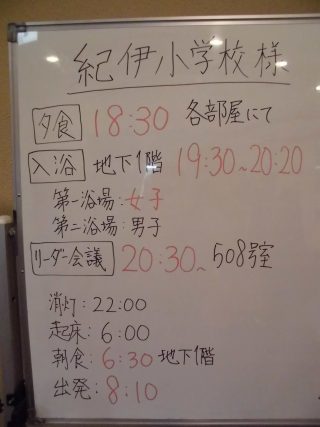 紀伊小学校様
夕食 18:30 各部屋にて
入浴 地下1階 19:30~20:20
第一浴場:女子
第二浴場:男子
リーダー会議 20:30~ 508号室
消灯:22:00
起床:6:00
朝食:6:30 地下1階
出発:8:10